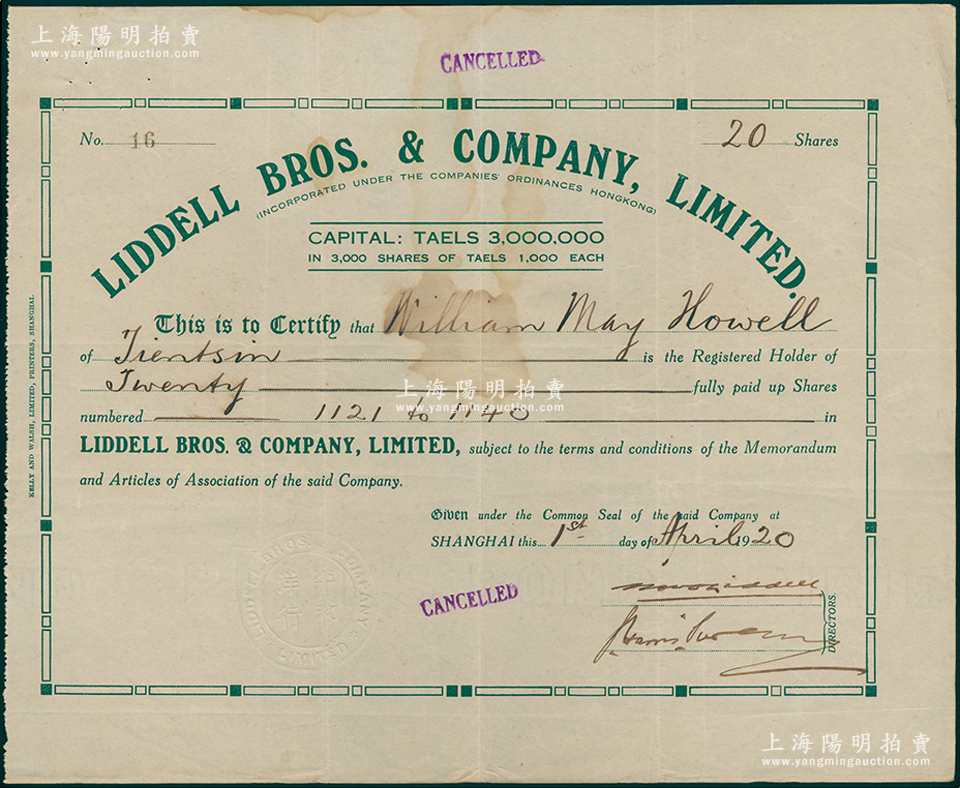 上海陽明拍賣
www.yangmingauction.com
CANCELLED
No. 16
20 Shares
LIDDELL BROS. & COMPANY, LIMITED.
(INCORPORATED UNDER THE COMPANIES' ORDINANCES HONGKONG)
CAPITAL: TAELS 3,000,000
IN 3,000 SHARES OF TAELS 1,000 EACH
This is to Certify that William May Howell
of Tientsin is the Registered Holder of
Twenty fully paid up Shares
上海陽明拍賣
www.yangmingauction.com
numbered 1121 to 1140 in
LIDDELL BROS. & COMPANY, LIMITED, subject to the terms and conditions of the Memorandum
and Articles of Association of the said Company.
Given under the Common Seal of the said Company at
SHANGHAI this 1st day of April 1920
CANCELLED
DIRECTORS.
LIDDELL BROS. & COMPANY
LIMITED
平和
洋行
KELLY AND WALSH, LIMITED, PRINTERS, SHANGHAI.
上海陽明拍賣
www.yangmingauction.com